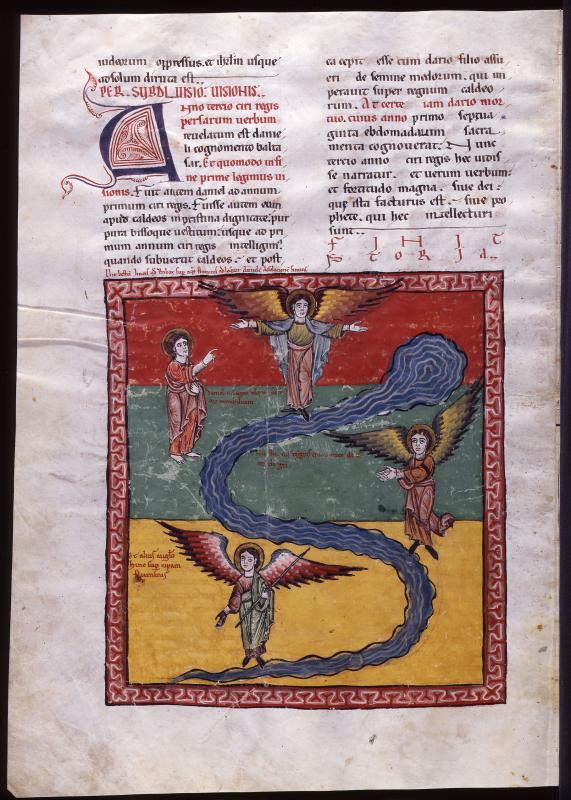 iudeorum oppressus. et ihrlm usque
ad solum diruta est..
PER. SVBDI. VISIO. VISIONIS..
Anno tercio ciri regis
persarum uerbum
reuelatum est danie
li cognomento balta
sar. Et quomodo in fi
ne prime legimus ui
sionis. Fuit autem daniel ad annum
primum ciri regis. Fuisse autem eum
apud caldeos in pristina dignitate. pur
pura bissoque uestitum: usque ad pri
mum annum ciri regis intelligimus
quando subuertit caldeos. et post
ea cepit esse cum dario filio assu
eri de semine medorum. qui im
perauit super regnum caldeo
rum. A certe iam dario mor
tuo. cuius anno primo septua
ginta ebdomadarum sacra
menta cognouerat. Nunc
tercio anno ciri regis hec uidis
se narratur. et uerum uerbum:
et fortitudo magna. siue dei:
que ista facturus est. siue pro
phete. qui hec intellecturi
sunt..
F I N I T
S T O R I A.